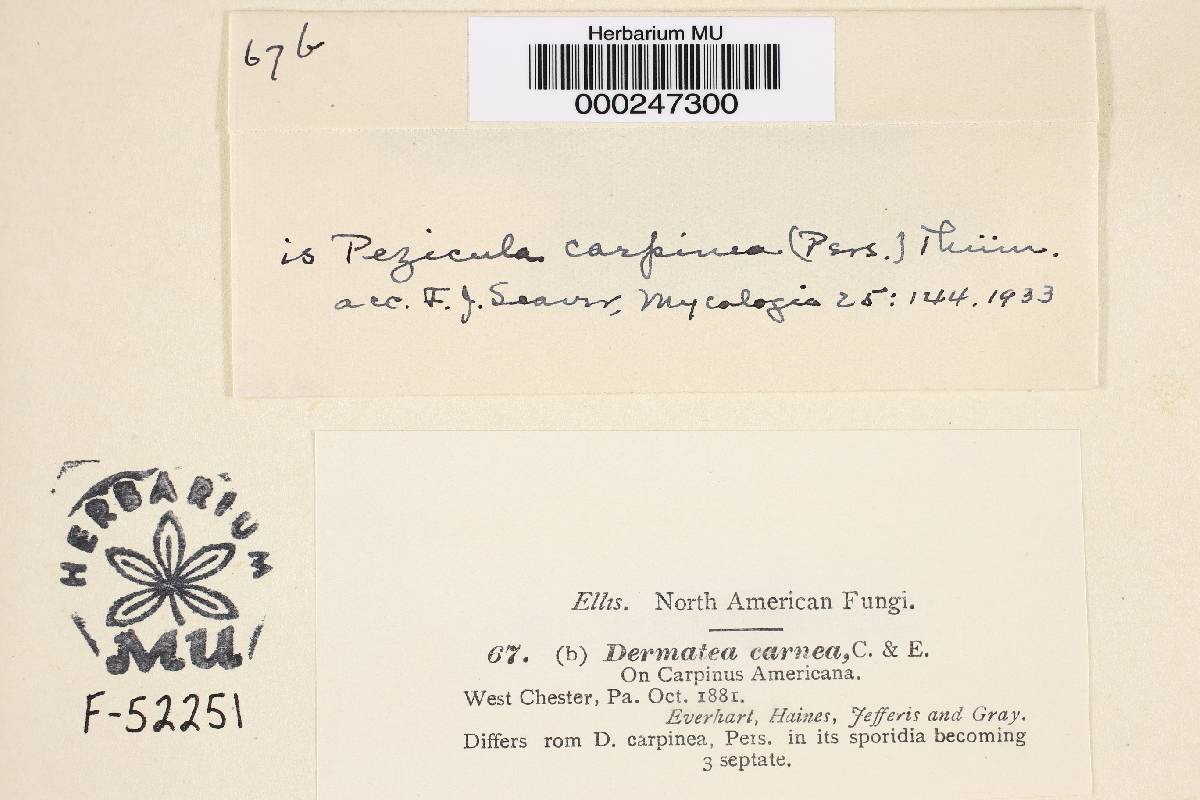 67b
Herbarium MU
000247300
is Pezicula carpinea (Pers.) Thüm.
acc. F. J. Seaver, Mycologia 25: 144. 1933
HERBARIUM
MU
F-52251
Ellis. North American Fungi.
67. (b) Dermatea carnea, C. & E.
On Carpinus Americana.
West Chester, Pa. Oct. 1881.
Everhart, Haines, Jefferis and Gray.
Differs rom D. carpinea, Pers. in its sporidia becoming
3 septate.